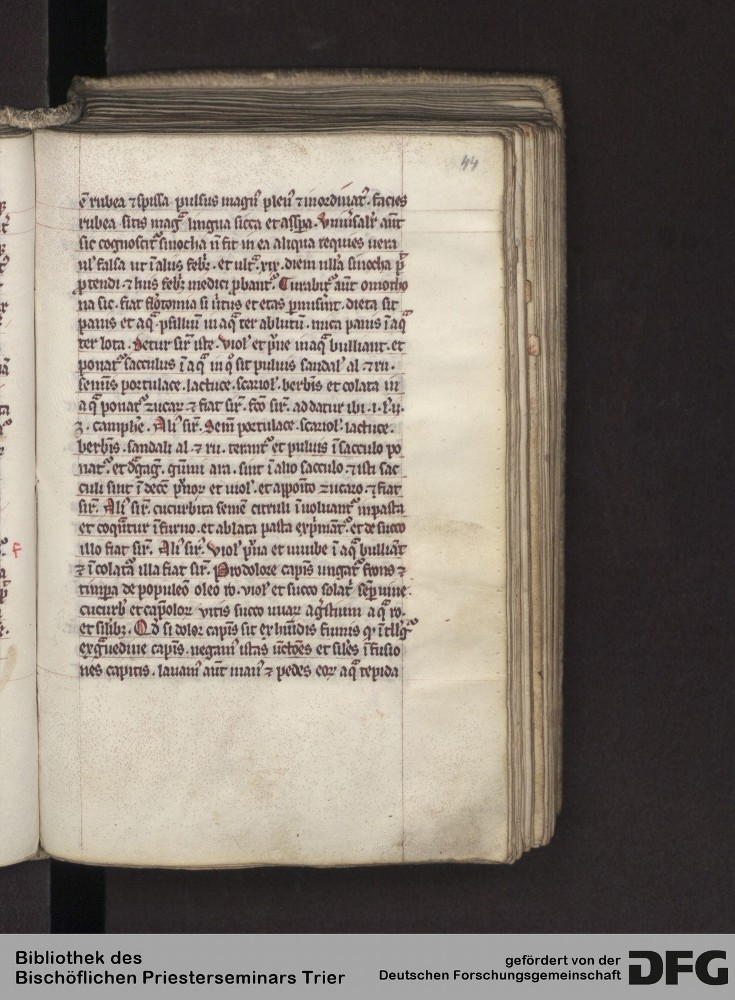 44
ē rubea ⁊ spissa pulsus magnꝰ plenꝰ ⁊ inordinatꝰ. facies
rubea sitis magͣ lingua sicca et asp̄a. Vniuersalr̄ aūt
sic cognoscit᷑ sinocha ñ fit in ea aliqua requies uera
ul̓ falsa ut ī aliis febr̓. et ultͣ .xıx. diem nulla sinocha p̄
ptendi. ⁊ hiis febr̓ medici ꝓbant᷑. Curabit᷑ aūt omotho
na sic. fiat flōtomia si uirtus et etas pmiserint. dieta sit
panis et aqͣ. psilliū in aqͣ ter ablutū. mica panis ī aqͣ
ter lota. Detur sir̄ iste. Viol̓ et pͥne in aqͣ bulliant. et
ponat᷑ sacculus ī aqͣ in qͦ sit puluis sandal̓ al̓ ⁊ ru.
seminis portulace. lactuce. scariol̓. berbīs et colata in
aqͣ ponat᷑ zucar̓ ⁊ fiat sir̄. fc̄o sir̄. addatur ibi .i. l̓ ıı.
ʒ. camphe̓. Al̓i sir̄. Sem̄ portulace. scariol̓. lactuce.
berbīs. sandali al̓ ⁊ ru. terant᷑ et puluis ī sacculo po
nat᷑. et dͣgͣg̃. gūmi ara. sint ī alio sacculo. ⁊ isti sac
culi sint ī decē pͥnor̓ et uiol̓. et apposito zucaro. ⁊ fiat
sir̄. Al̓i sir̄. cucurbita semē citruli īuoluant᷑ in pasta
et coquātur ī furno. et ablata pasta expͥmāt᷑. et de succo
illo fiat sir̄. Al̓i sir̄. Viol̓ pͥna et iuiube ī aqͣ bulliāt
⁊ ī colatͣ illa fiat sir̄. Pro dolore capīs ungat᷑ frons ⁊
timpa de populeō oleo ro. viol̓ et succo solat᷑ semp uiue.
cucurb̓ et capͥolor̓ vitis succo uuar̓ agͥstium aqͣ ro.
et silibꝫ. Qd̓ si dolor capīs sit ex hūidis fumis
capīs. negam̄ istas ūctōes et sil̓es īfusio
nes capitis. lauam̄ aūt manꝰ ⁊ pedes eorꝫ aqͣ tepida
Bibliothek des
Bischöflichen Priesterseminars Trier
gefördert von der
Deutschen Forschungsgemeinschaft
DFG